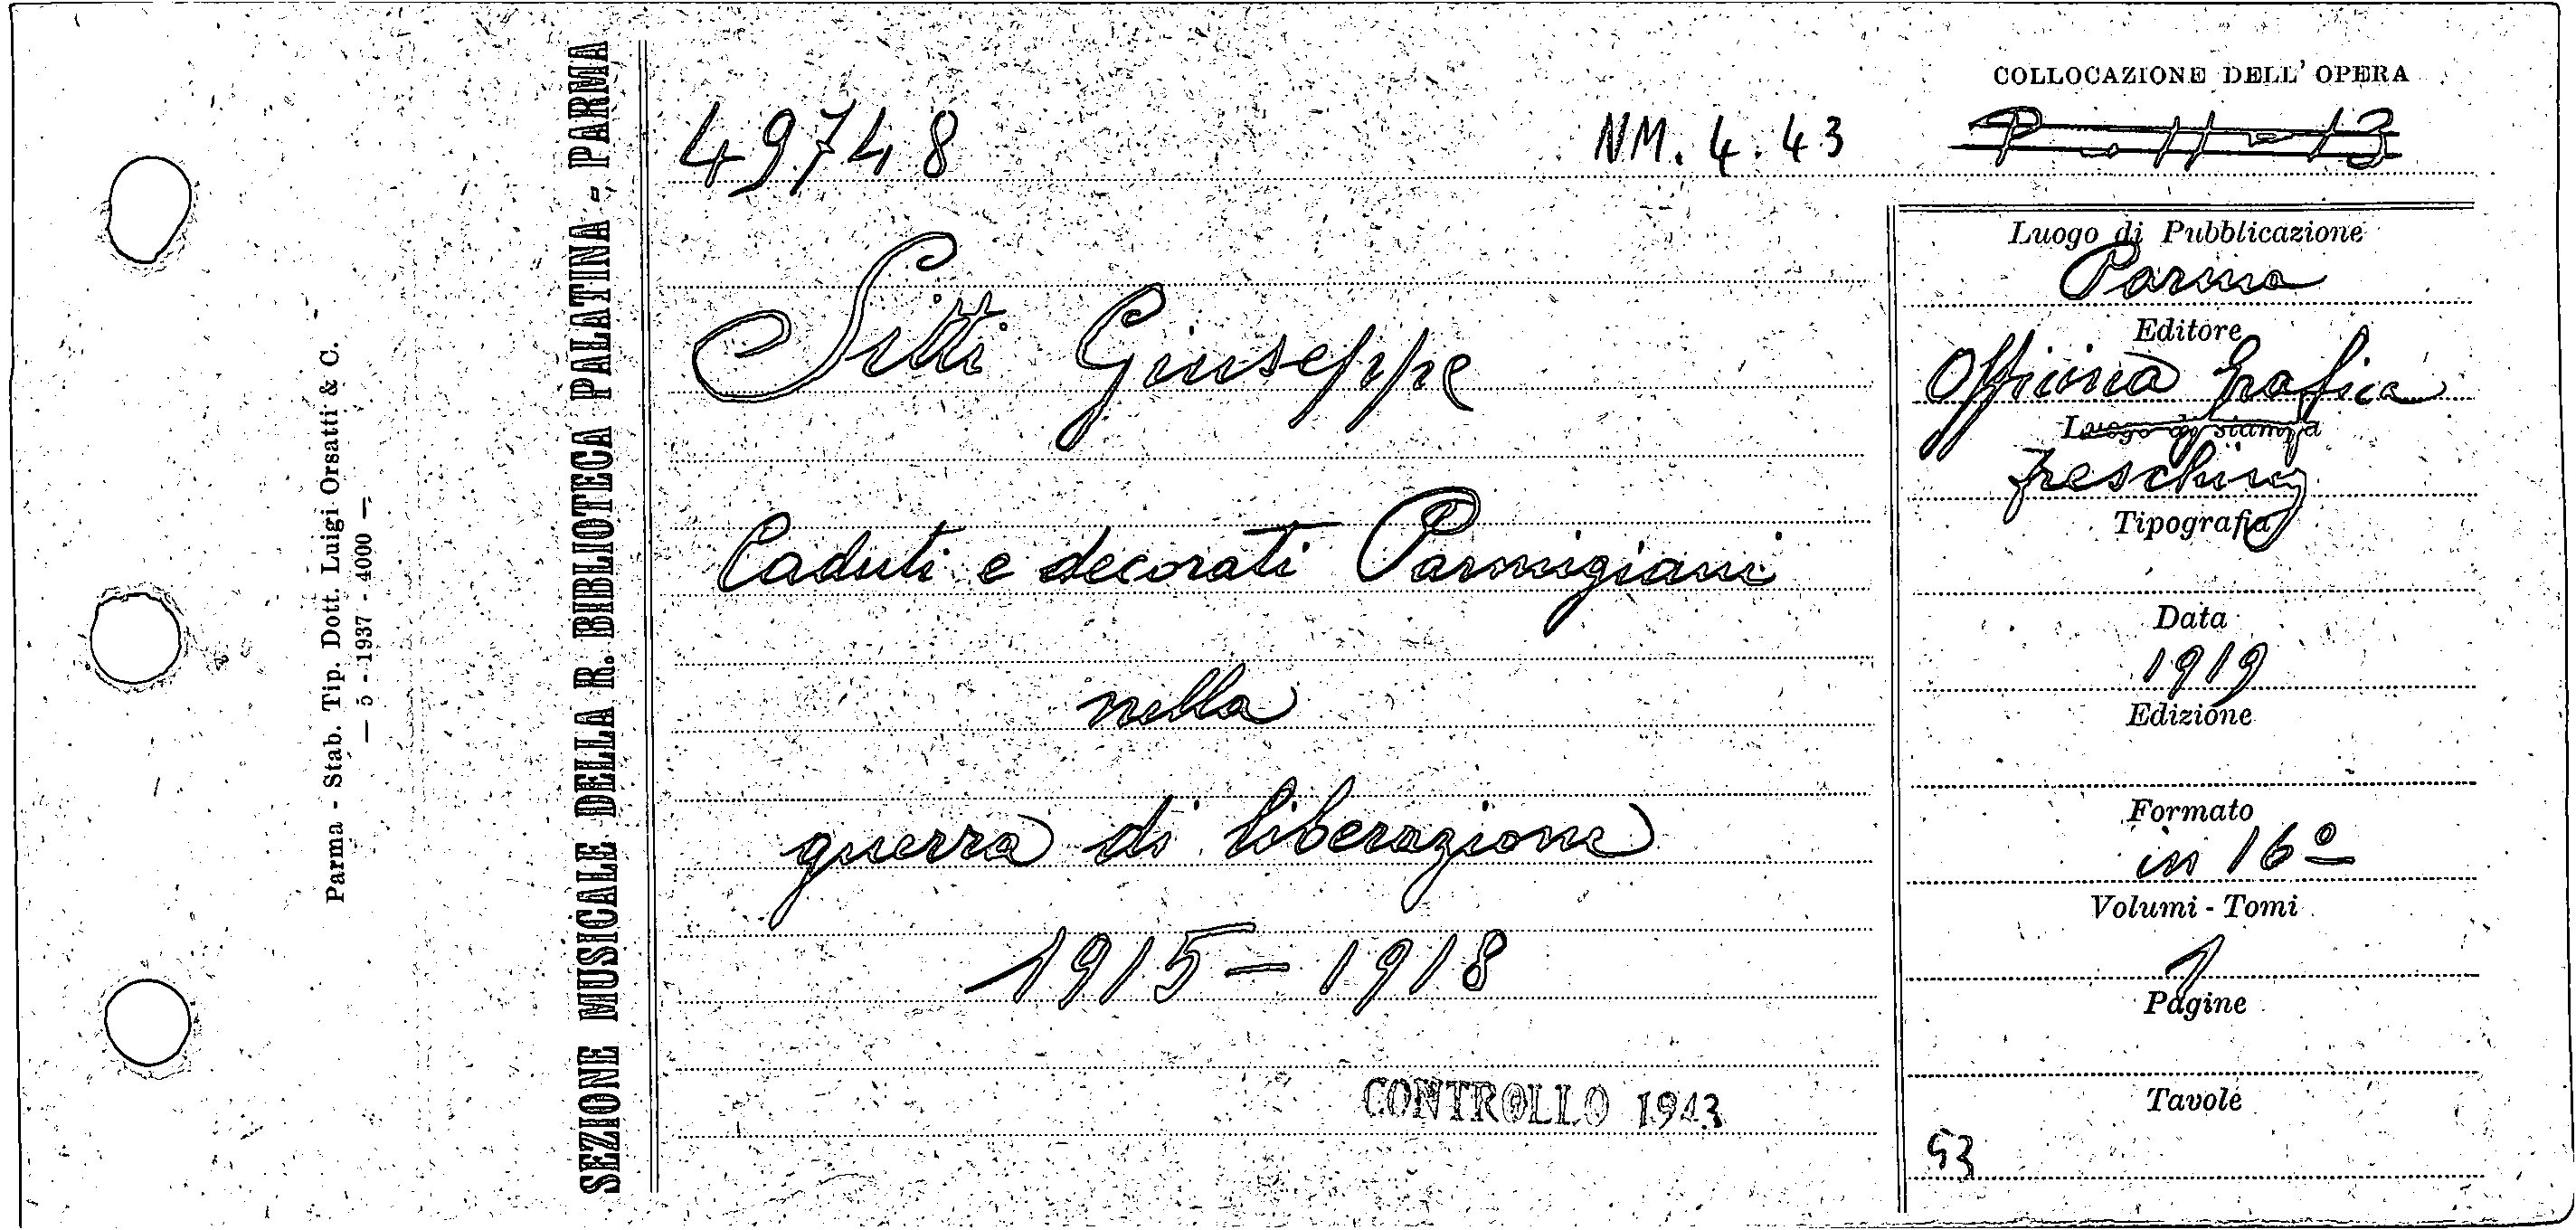 Parma - Stab. Tip. Dott. Luigi Orsatti & C.
— 5 - 1937 - 4000 —
SEZIONE MUSICALE DELLA R. BIBLIOTECA PALATINA - PARMA
COLLOCAZIONE DELL' OPERA
49748 NM. 4. 43 P - 11 - 13
Sitti Giuseppe
Caduti e decorati Parmigiani
nella
guerra di liberazione
1915 - 1918
CONTROLLO 1943
Luogo di Pubblicazione
Parma
Editore
Officina Grafica
Luogo di stampa
Fresching
Tipografia
Data
1919
Edizione
Formato
in 16º
Volumi - Tomi
1
Pagine
Tavole
53